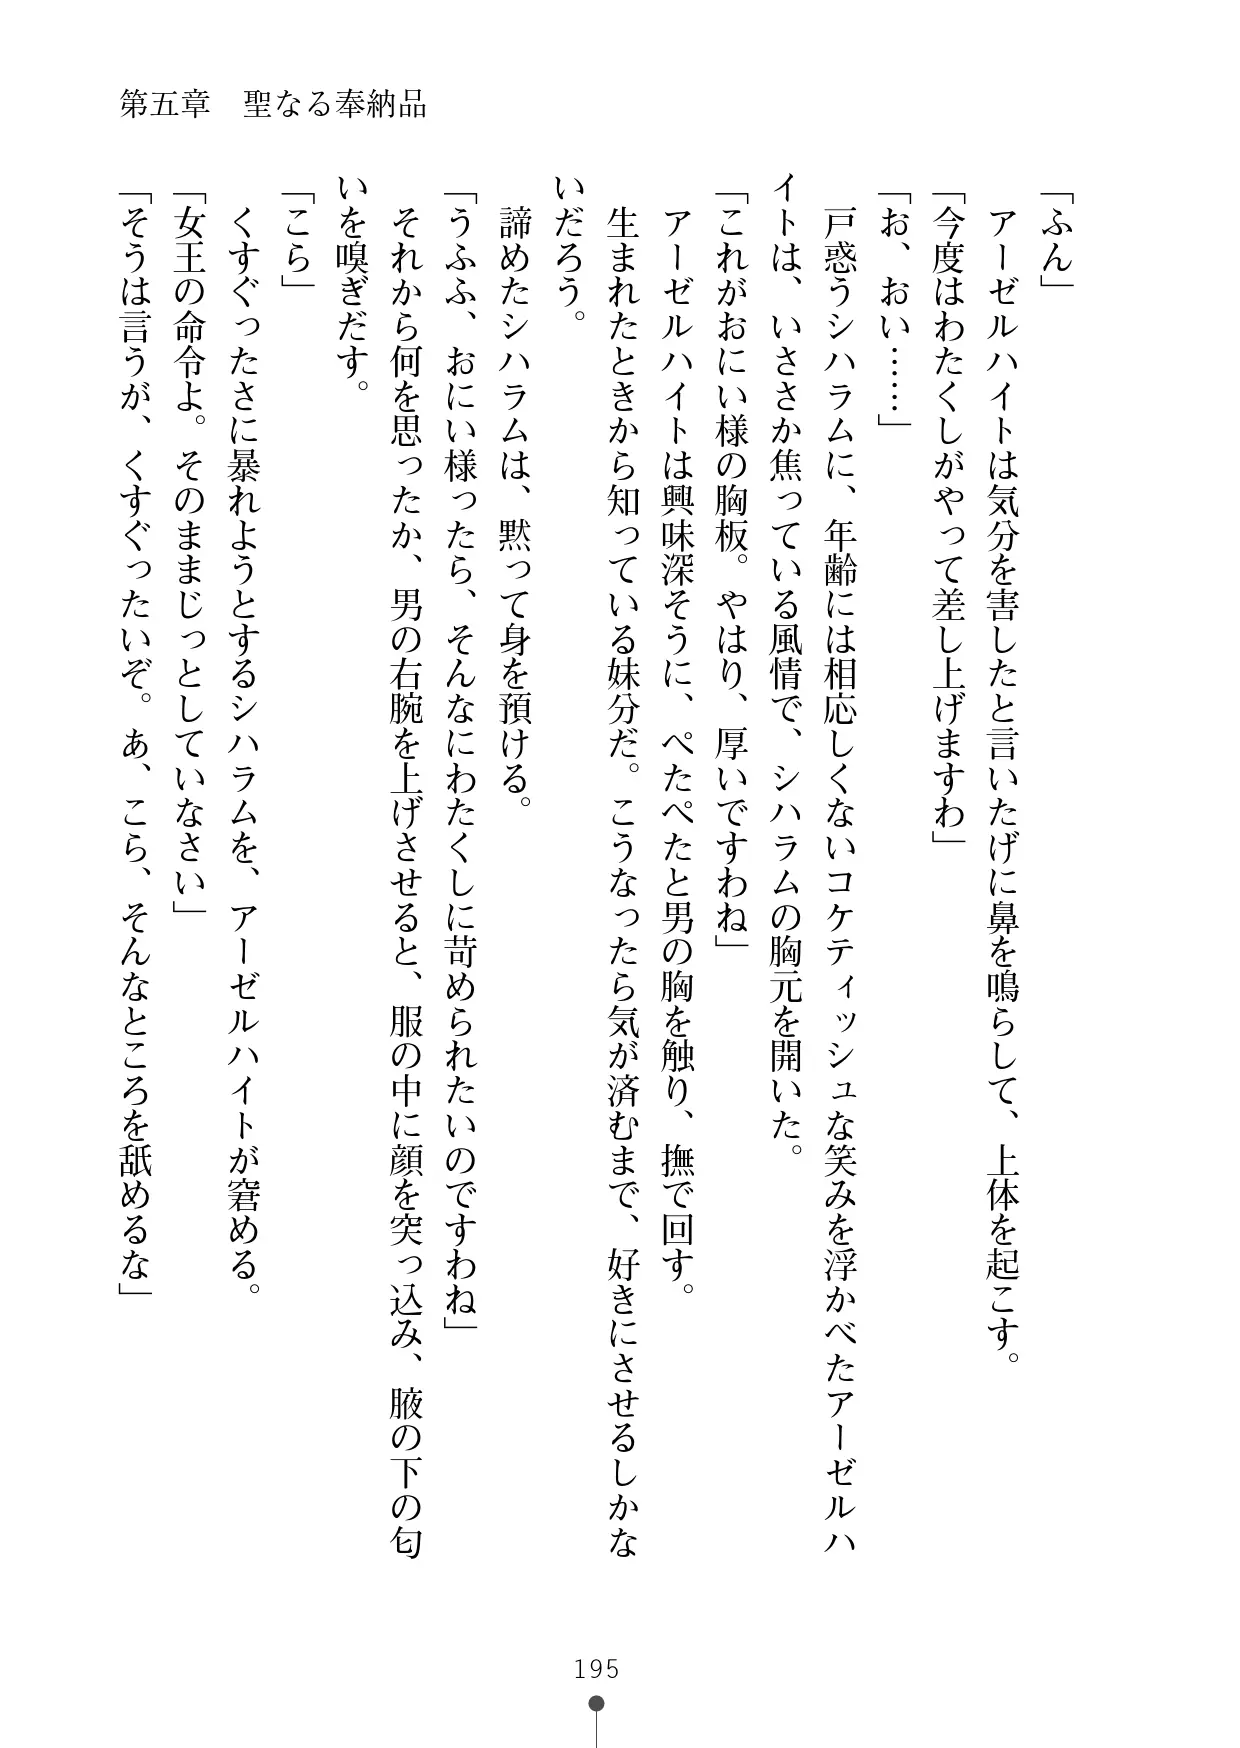 第五章　聖なる奉納品
「ふん」
　アーゼルハイトは気分を害したと言いたげに鼻を鳴らして、上体を起こす。
「今度はわたくしがやって差し上げますわ」
「お、おい……」
　戸惑うシハラムに、年齢には相応しくないコケティッシュな笑みを浮かべたアーゼルハ
イトは、いささか焦っている風情で、シハラムの胸元を開いた。
「これがおにい様の胸板。やはり、厚いですわね」
　アーゼルハイトは興味深そうに、ぺたぺたと男の胸を触り、撫で回す。
　生まれたときから知っている妹分だ。こうなったら気が済むまで、好きにさせるしかな
いだろう。
　諦めたシハラムは、黙って身を預ける。
「うふふ、おにい様ったら、そんなにわたくしに苛められたいのですわね」
　それから何を思ったか、男の右腕を上げさせると、服の中に顔を突っ込み、腋の下の匂
いを嗅ぎだす。
「こら」
　くすぐったさに暴れようとするシハラムを、アーゼルハイトが窘める。
「女王の命令よ。そのままじっとしていなさい」
「そうは言うが、くすぐったいぞ。あ、こら、そんなところを舐めるな」
195